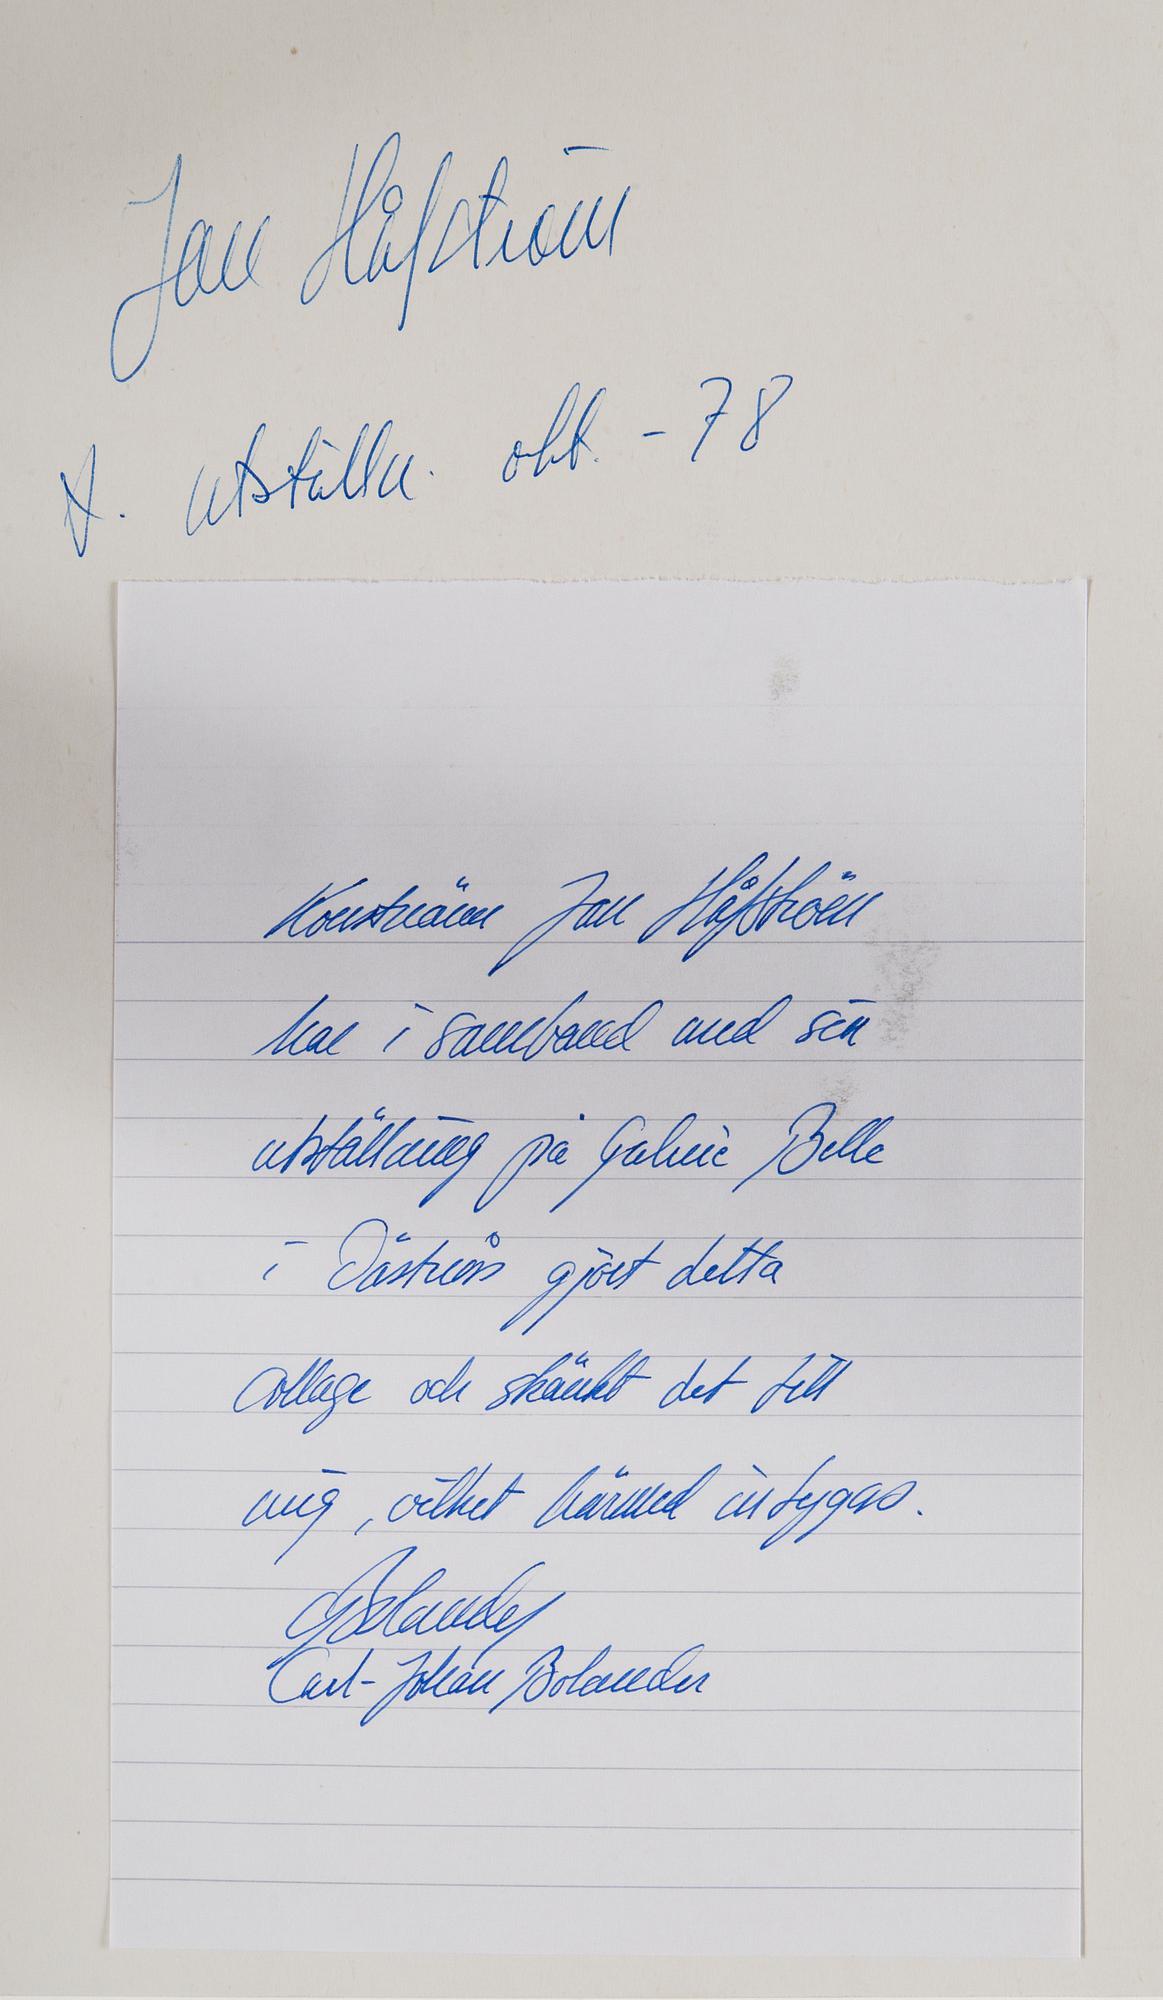 Jan Håfström
V. utställn. okt. - 78
Konstnären Jan Håfström
har i samband med sin
utställning på Galerie Belle
i Västerås gjort detta
collage och skänkt det till
mig, vilket härmed intygas.
CJBolander
Carl-Johan Bolander